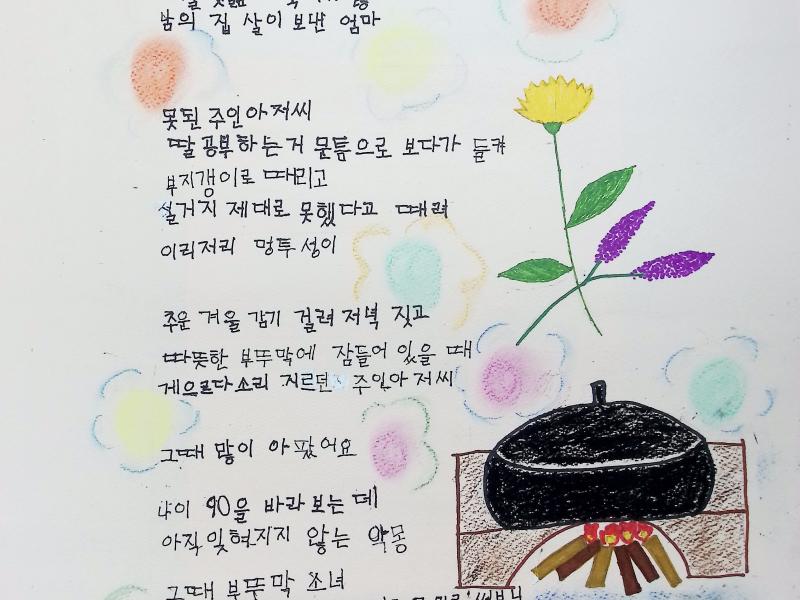 남의 집 살이 보낸 엄마
못된 주인아저씨
딸 공부하는거 문틈으로 보다가 들켜
부지갱이로 때리고
설거지 제대로 못했다고 때려
이리저리 멍투성이
추운 겨울 감기 걸려 저녁 짓고
따뜻한 부뚜막에 잠들어 있을 때
게으르다 소리 지르던 주인아저씨
그때 많이 아팠어요
나이 90을 바라보는데
아직 잊혀지지 않는 악몽
그때 부뚜막 소녀